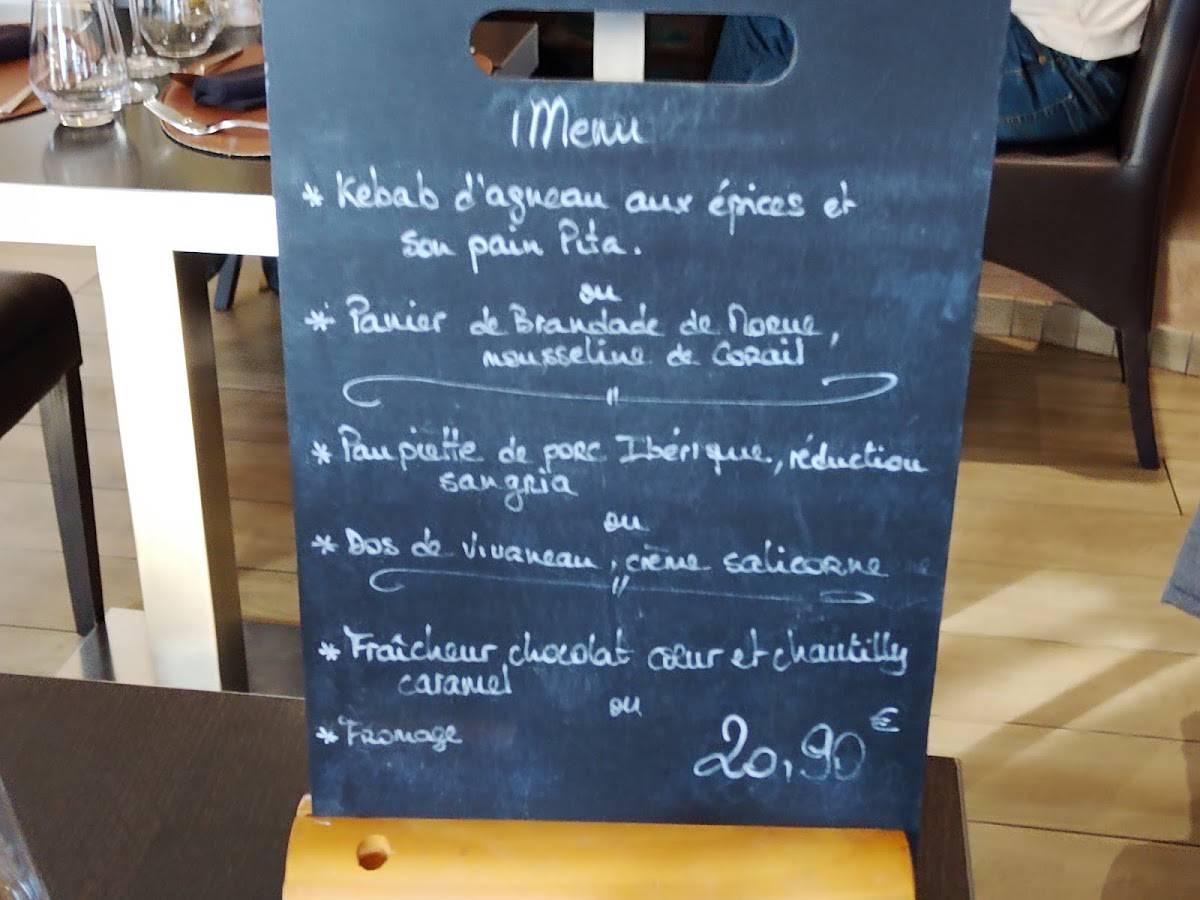 Menu
* Kebab d'agneau aux épices et
son pain Pita.
ou
* Panier de Brandade de Morue,
mousseline de Corail
* Paupiette de porc Ibérique, réduction
sangria
ou
* Dos de vivaneau, crème salicorne
* Fraîcheur chocolat cœur et chantilly
caramel
ou
* Fromage
20,90 €